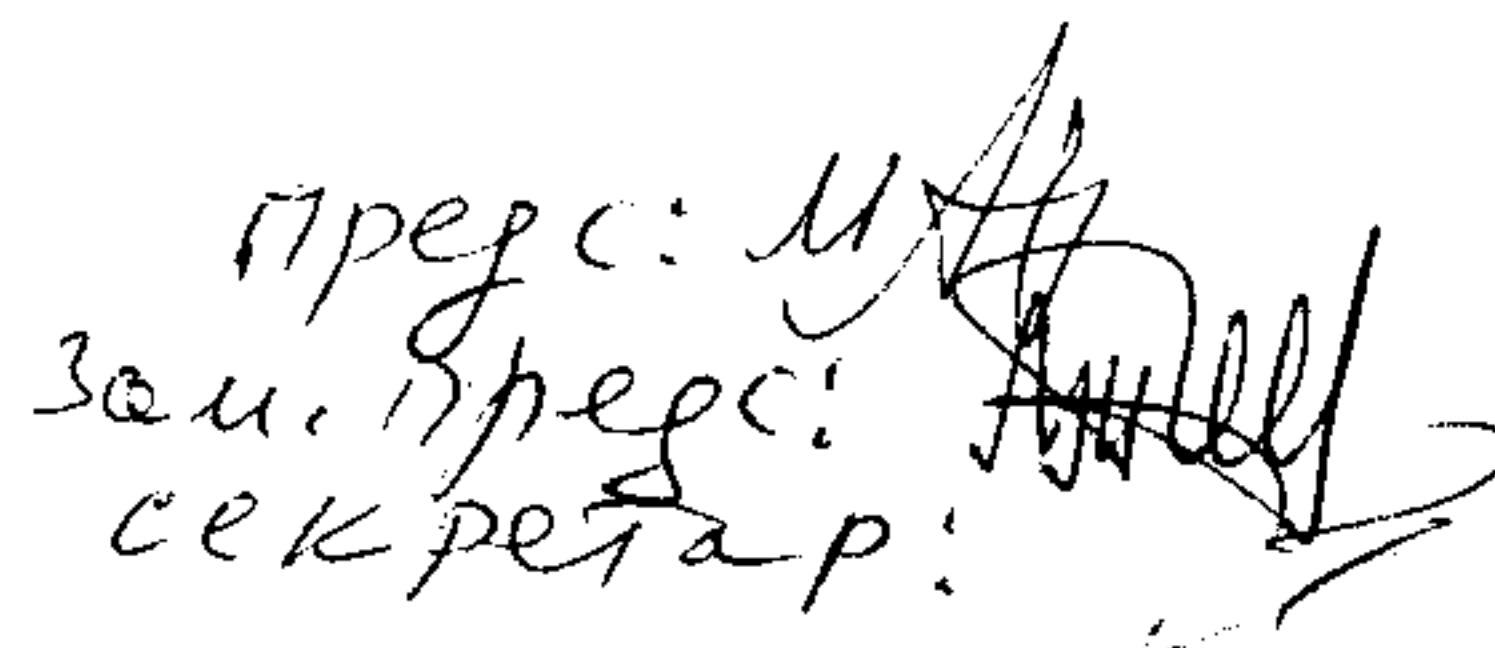 Предс:
Зам. Предс:
секретар: